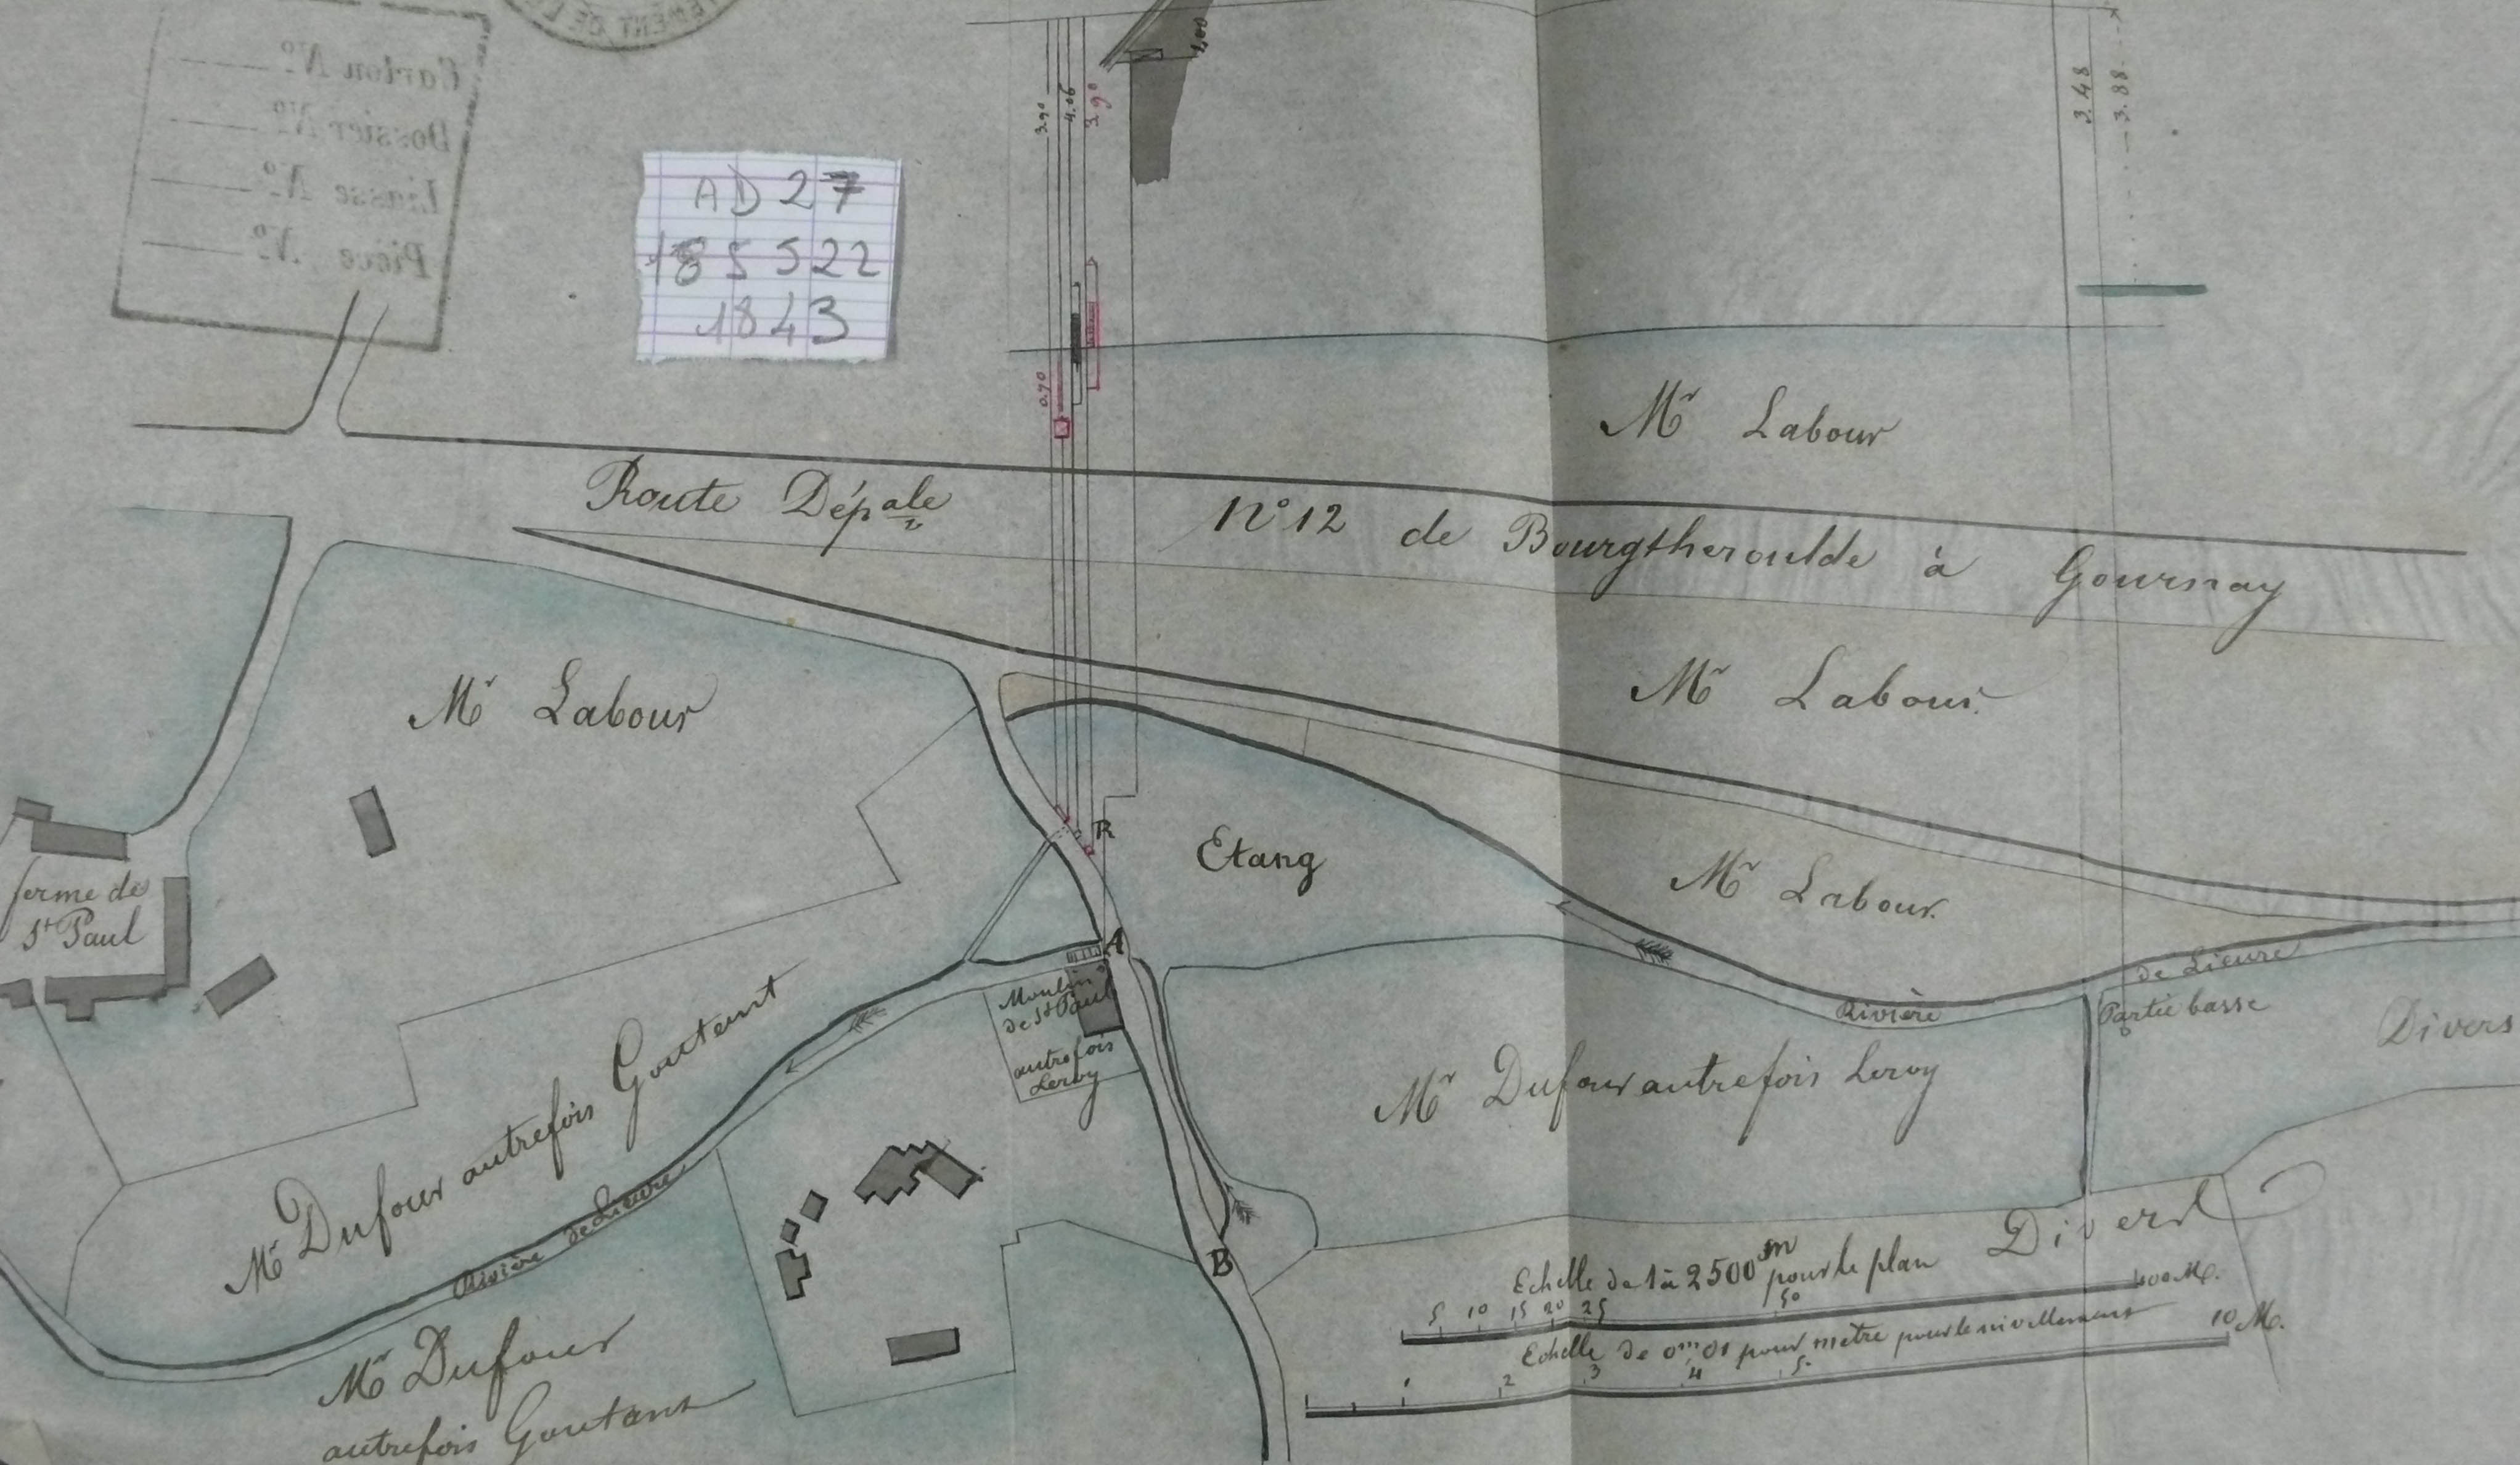 Carton N°
Dossier N°
Liasse N°
Pièce N°
AD 27
185522
1843
1,00
3.90
4.06
3.90
0.70
3.48
3.88
Mr Labour
Route Dépale N° 12 de Bourgtheroulde à Gournay
Mr Labour
Mr Labour
Mr Labour
Etang
R
A
B
ferme de
St Paul
Moulin
de St Paul
autrefois
Leroy
Rivière de Lieure
Partie basse
Divers
Mr Dufour autrefois Leroy
Mr Dufour autrefois Goutent
Rivière de Lieure
Mr Dufour
autrefois Goutant
Divers
Echelle de 1 à 2500m pour le plan
5 10 15 20 25 50 100 M.
Echelle de 0m,01 pour mètre pour le nivellement
1 2 3 4 5 10 M.